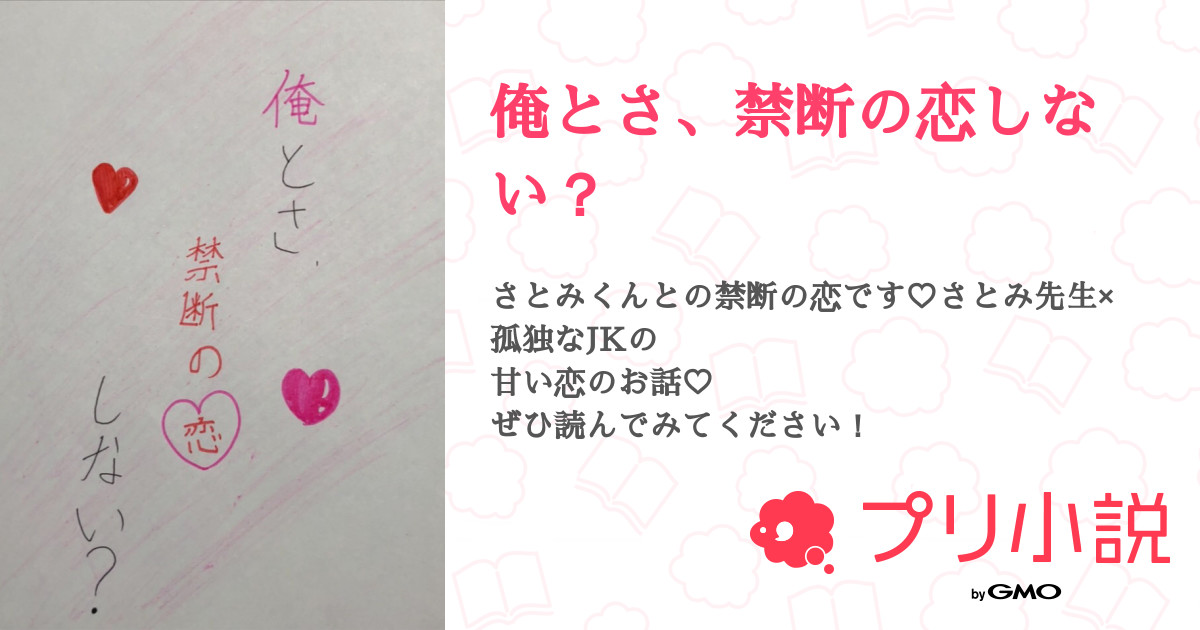 俺とさ、
禁断の恋
しない?
俺とさ、禁断の恋しな
い?
さとみくんとの禁断の恋です♡さとみ先生×
孤独なJKの
甘い恋のお話♡
ぜひ読んでみてください!
プリ小説
by GMO